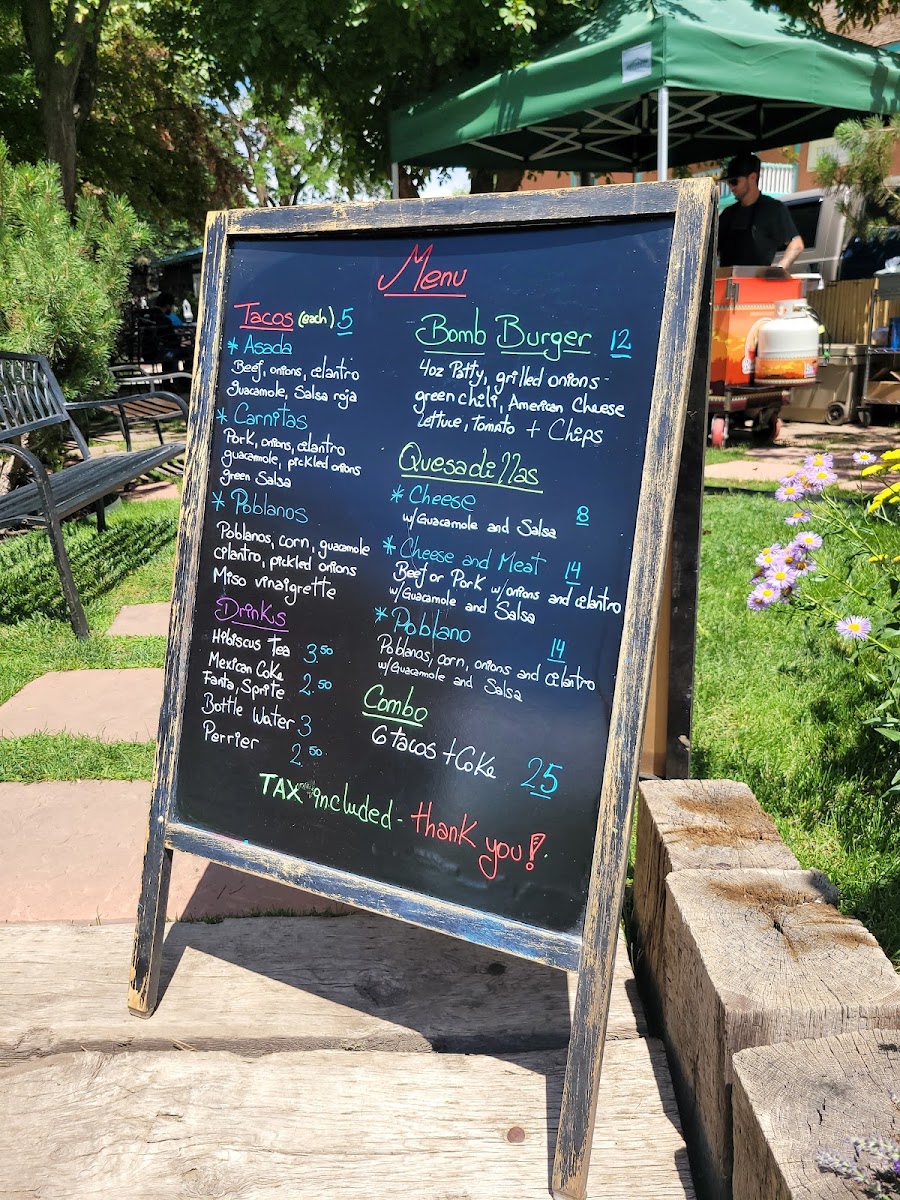 Menu
Tacos (each) 5
* Asada
Beef, onions, cilantro
guacamole, Salsa roja
* Carnitas
Pork, onions, cilantro
guacamole, pickled onions
green Salsa
* Poblanos
Poblanos, corn, guacamole
cilantro, pickled onions
Miso vinaigrette
Drinks
Hibiscus Tea 3.50
Mexican Coke
Fanta, Sprite 2.50
Bottle Water 3
Perrier 2.50
Bomb Burger 12
4oz Patty, grilled onions
green chili, American Cheese
lettuce, Tomato + Chips
Quesadillas
* Cheese 8
w/Guacamole and Salsa
* Cheese and Meat 14
Beef or Pork w/onions and cilantro
w/Guacamole and Salsa
* Poblano 14
Poblanos, corn, onions and cilantro
w/Guacamole and Salsa
Combo
6 tacos + Coke 25
TAX included - thank you!